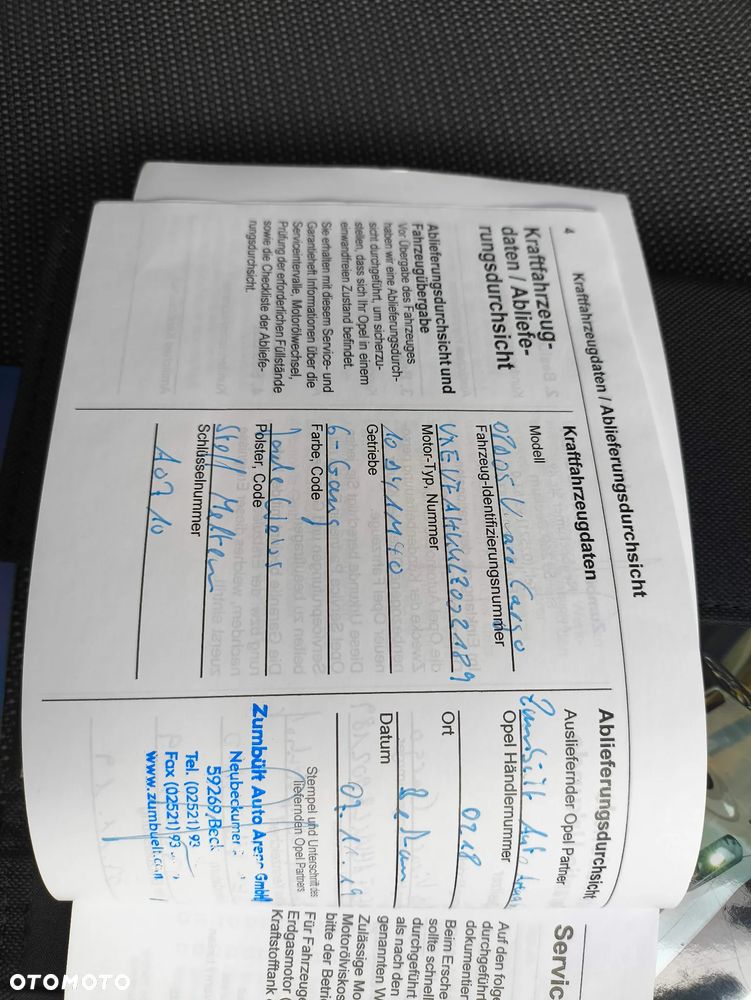 Kraftfahrzeugdaten / Ablieferungsdurchsicht
4
Kraftfahrzeug-
daten / Abliefe-
rungsdurchsicht
Ablieferungsdurchsicht und
Fahrzeugübergabe
Vor Übergabe des Fahrzeuges
haben wir eine Ablieferungsdurch-
sicht durchgeführt, um sicherzu-
stellen, dass sich Ihr Opel in einem
einwandfreien Zustand befindet.
Sie erhalten mit diesem Service- und
Garantieheft Informationen über die
Serviceintervalle, Motorölwechsel,
Prüfung der erforderlichen Füllstände
sowie die Checkliste der Abliefe-
rungsdurchsicht.
Kraftfahrzeugdaten
Modell
Cargo
Fahrzeug-Identifizierungsnummer
Motor-Typ, Nummer
Getriebe
6-Gang
Farbe, Code
Polster, Code
Stoff
Schlüsselnummer
Ablieferungsdurchsicht
Ausliefernder Opel Partner
Zumbült Auto Arena
Opel Händlernummer
0218
Ort
Datum
07.11.19
Stempel und Unterschrift des
liefernden Opel Partners
Zumbült Auto Arena GmbH
Neubeckumer
59269 Beck
Tel. (02521) 93
Fax (02521) 93
www.zumbuelt.com
Servic
Auf den folge
durchgeführt
dokumentier
Beim Ersche
sollte schnell
durchgeführt
als nach den
genannten W
Zulässige Mo
Motorölviskos
bitte der Betri
Für Fahrzeuge
Erdgasmotor (
Kraftstofftank
OTOMOTO
OTOMOTO